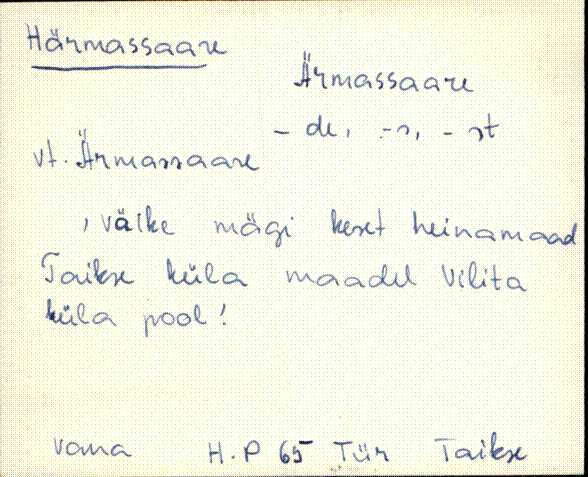 Härmassaare
Ärmassaare
- de, -s, - st
vt. Ärmassaare
, väike mägi keset heinamaad
Taikse küla maadel Vilita
küla pool!
vana H.P 65 Tür Taikse